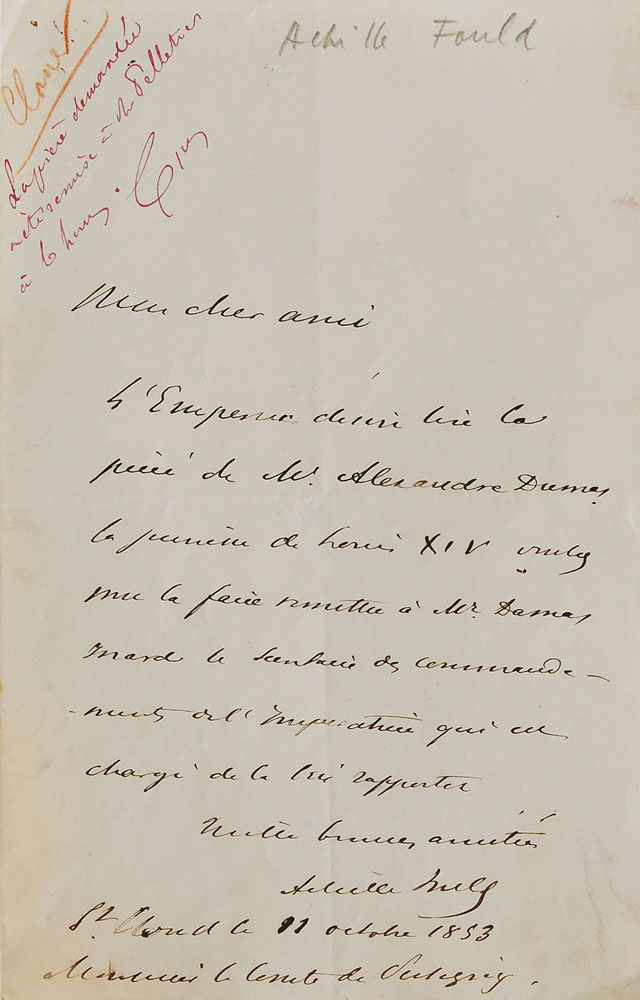 Achille Fould
Classer
La pièce demandée
a été remise à Mr Pelletier
à 6 heures.
Mon cher ami
L'Empereur désire lire la
pièce de Mr. Alexandre Dumas
la jeunesse de Louis XIV veuillez
me la faire remettre à Mr. Damas
inard le secrétaire des commande-
-ments de l'Impératrice qui est
chargé de la lui rapporter
Mille bonnes amitiés
Achille Fould
St. Cloud le 11 octobre 1853
Monsieur le Comte de Persigny.